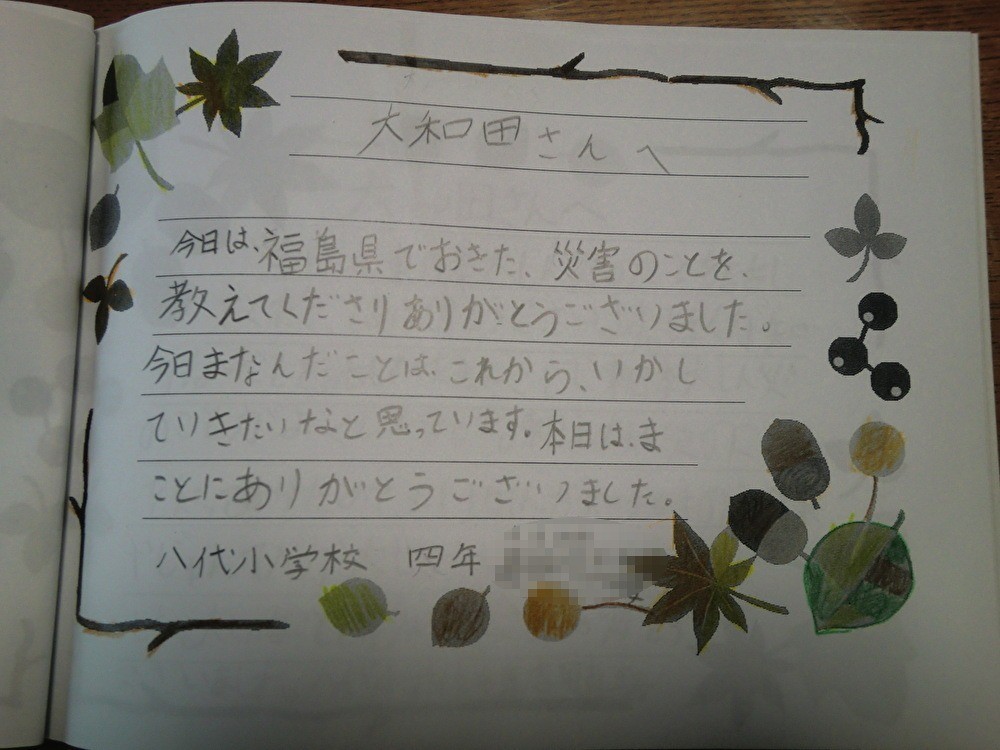 大和田さんへ
今日は、福島県でおきた、災害のことを、
教えてくださりありがとうございました。
今日まなんだことは、これから、いかし
ていきたいなと思っています。本日は、ま
ことにありがとうございました。
八代小学校 四年